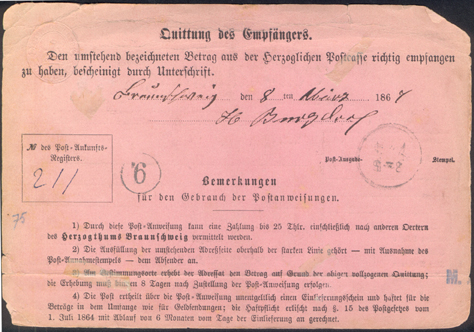 Quittung des Empfängers.
Den umstehend bezeichneten Betrag aus der Herzoglichen Postcasse richtig empfangen
zu haben, bescheinigt durch Unterschrift.
Braunschweig den 8 ten März 1867
H Burgdorf
№ des Post-Ankunfts-
Registers.
211
9.
Post-Ausgabe- Stempel.
Bemerkungen
für den Gebrauch der Postanweisungen.
75
1) Durch diese Post-Anweisung kann eine Zahlung bis 25 Thlr. einschließlich nach anderen Oertern
des Herzogthums Braunschweig vermittelt werden.
2) Die Ausfüllung der umstehenden Adreßseite oberhalb der starken Linie gehört — mit Ausnahme des
Post-Annahmestempels — dem Absender an.
3) Am Bestimmungsorte erhebt der Adressat den Betrag auf Grund der obigen vollzogenen Quittung;
die Erhebung muß binnen 8 Tagen nach Zustellung der Post-Anweisung erfolgen.
4) Die Post ertheilt über die Post-Anweisung unentgeltlich einen Einlieferungsschein und haftet für die
Beträge in dem Umfange wie für Geldsendungen; die Haftpflicht erlischt nach §. 15 des Postgesetzes vom
1. Juli 1864 mit Ablauf von 6 Monaten vom Tage der Einlieferung an gerechnet.